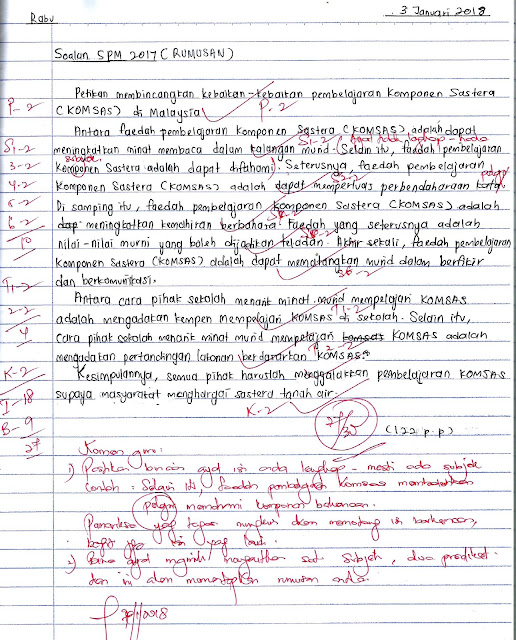 Rabu
3 Januari 2018
Soalan SPM 2017 (RUMUSAN)
Petikan membincangkan kebaikan-kebaikan pembelajaran Komponen Sastera
P-2 (KOMSAS) di Malaysia. P-2
Antara faedah pembelajaran Komponen Sastera (KOMSAS) adalah dapat
S1-2 meningkatkan minat membaca dalam kalangan murid. S1-2 Selain itu, faedah pembelajaran
3-2 Komponen Sastera adalah dapat difahami. Seterusnya, faedah pembelajaran
4-2 Komponen Sastera (KOMSAS) adalah dapat memperluas perbendaharaan kata.
5-2 Di samping itu, faedah pembelajaran Komponen Sastera (KOMSAS) adalah
6-2 dap meningkatkan kemahiran berbahasa. Faedah yang seterusnya adalah
10 nilai-nilai murni yang boleh dijadikan teladan. Akhir sekali, faedah pembelajaran
Komponen Sastera (KOMSAS) adalah dapat mematangkan murid dalam berfikir
T1-2 dan berkomunikasi. S6-2
Antara cara pihak sekolah menarik minat murid mempelajari KOMSAS
2-2 adalah mengadakan kempen mempelajari KOMSAS di sekolah. T1-2 Selain itu,
4 cara pihak sekolah menarik minat murid mempelajari komsas KOMSAS adalah
mengadakan pertandingan lakonan berdasarkan KOMSAS. 2-2
K-2 Kesimpulannya, semua pihak haruslah menggalakkan pembelajaran KOMSAS
I-18 supaya masyarakat menghargai sastera tanah air.
K-2
B-9 27/30 (122 p.p)
27 Komen guru:
1) Pastikan binaan ayat isi ada lengkap - mesti ada subjek
contoh: Selain itu, faedah pembelajaran Komsas
pelajar memahami komponen
Pemeriksa yang tegas mungkin akan memotong isi
2) Bina ayat subjek, dua predikat
dan ini akan memantapkan rumusan anda.